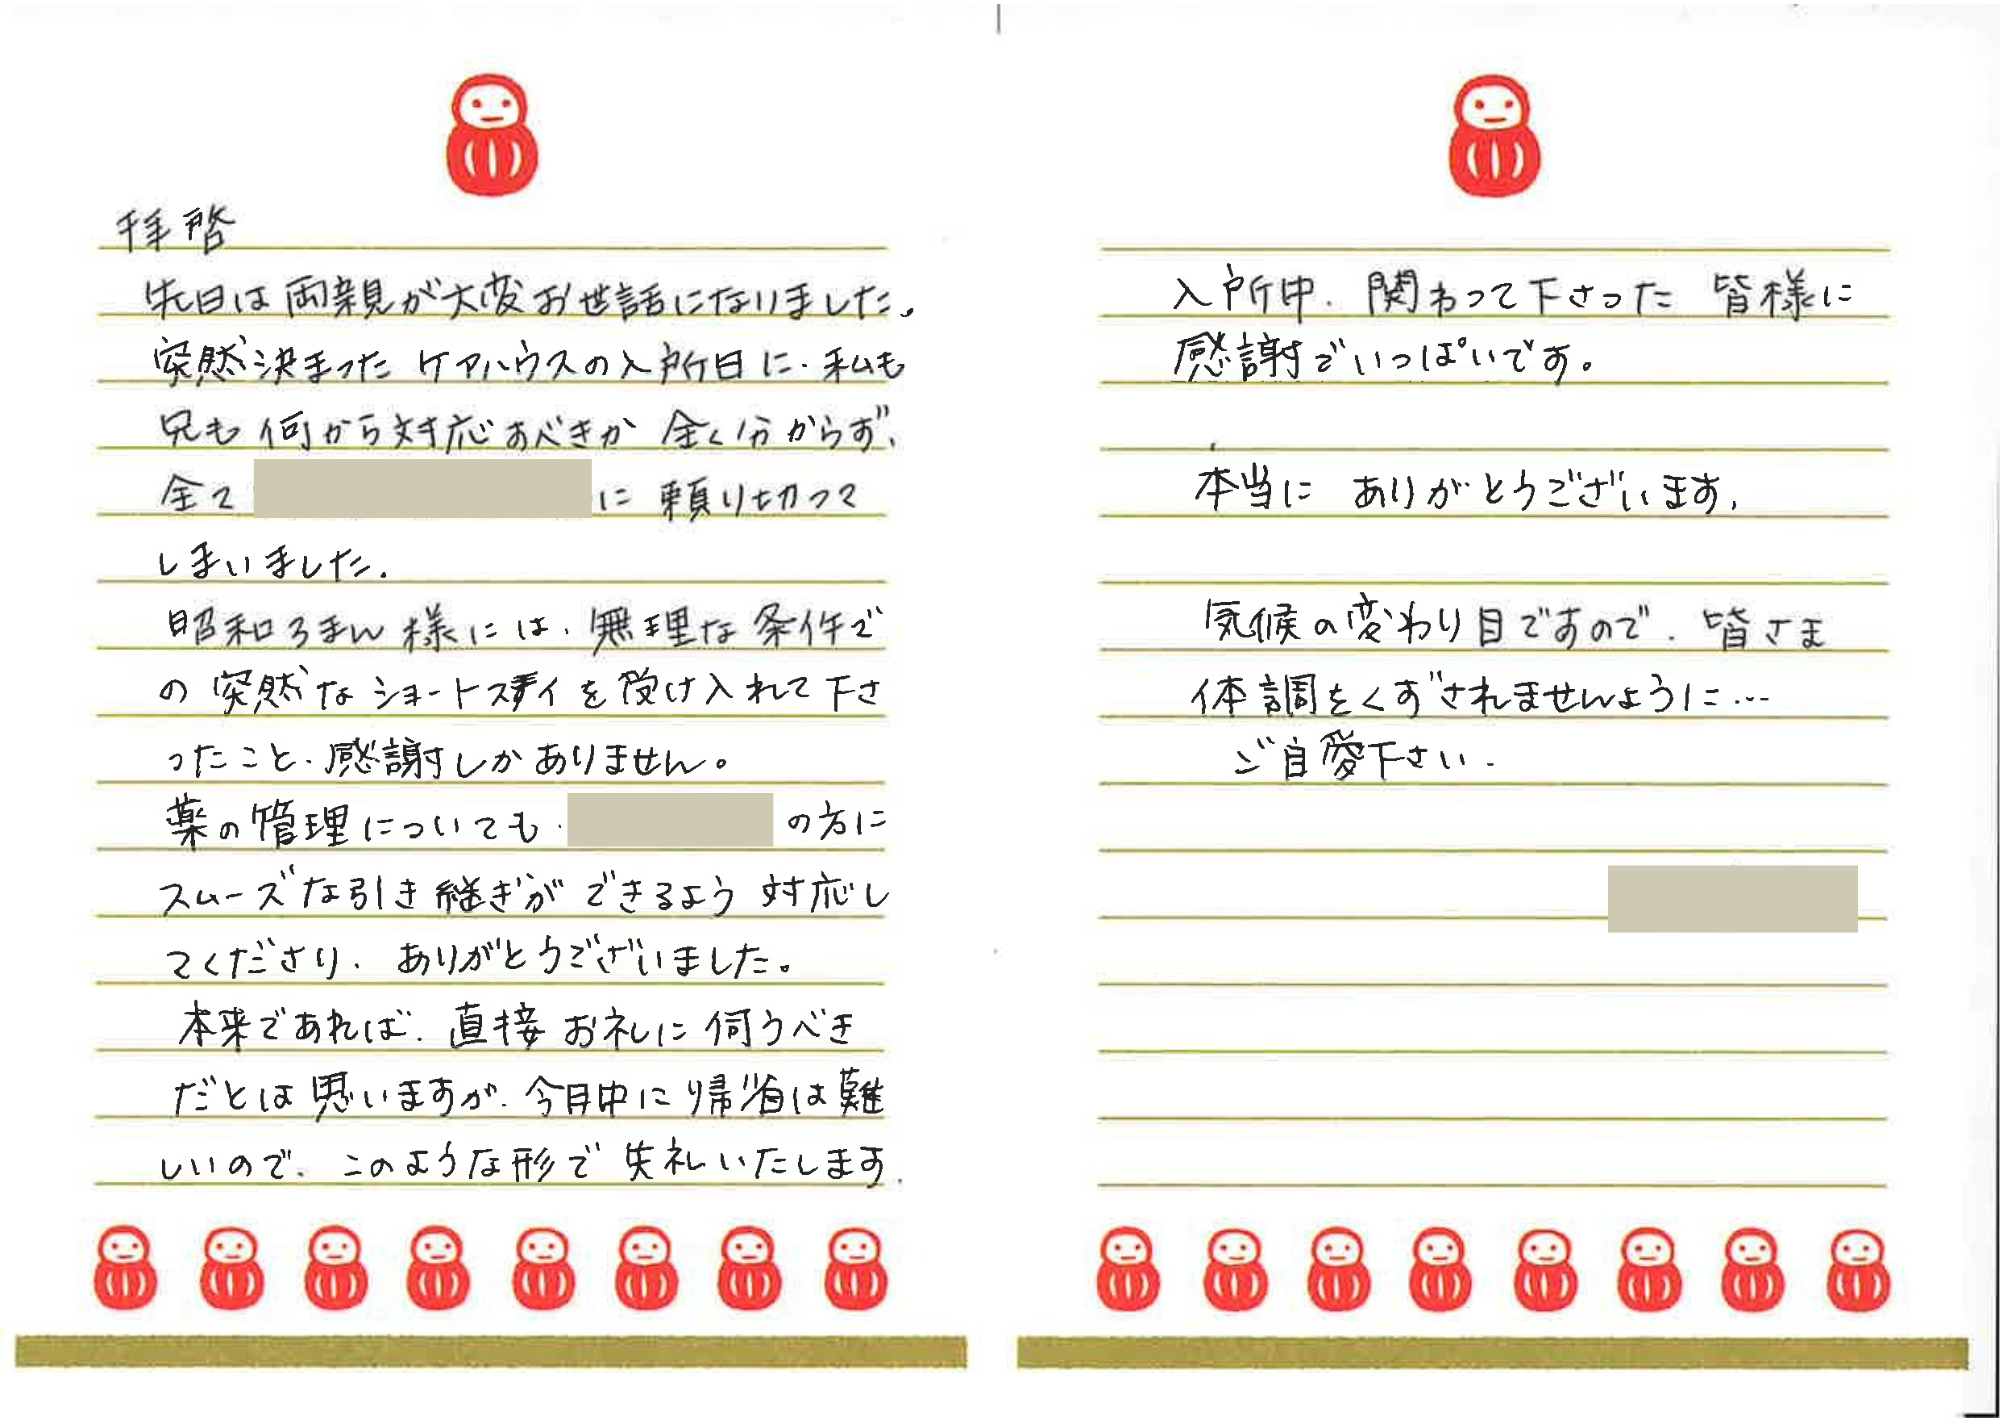 拝啓
先日は両親が大変お世話になりました。
突然決まった ケアハウスの入所日に、私も
兄も 何から対応すべきか 全く分からず、
全て に 頼り切って
しまいました。
昭和ろまん様には、無理な条件で
の 突然な ショートステイを受け入れて下さ
ったこと、感謝しかありません。
薬の管理についても、 の方に
スムーズな引き継ぎが できるよう 対応し
てくださり、ありがとうございました。
本来であれば、直接 お礼に 伺うべき
だとは思いますが、今月中に帰省は難
しいので、このような形で 失礼いたします。
入所中、関わって下さった 皆様に
感謝でいっぱいです。
本当に ありがとうございます。
気候の変わり目ですので、皆さま
体調をくずされませんように…
ご自愛下さい。